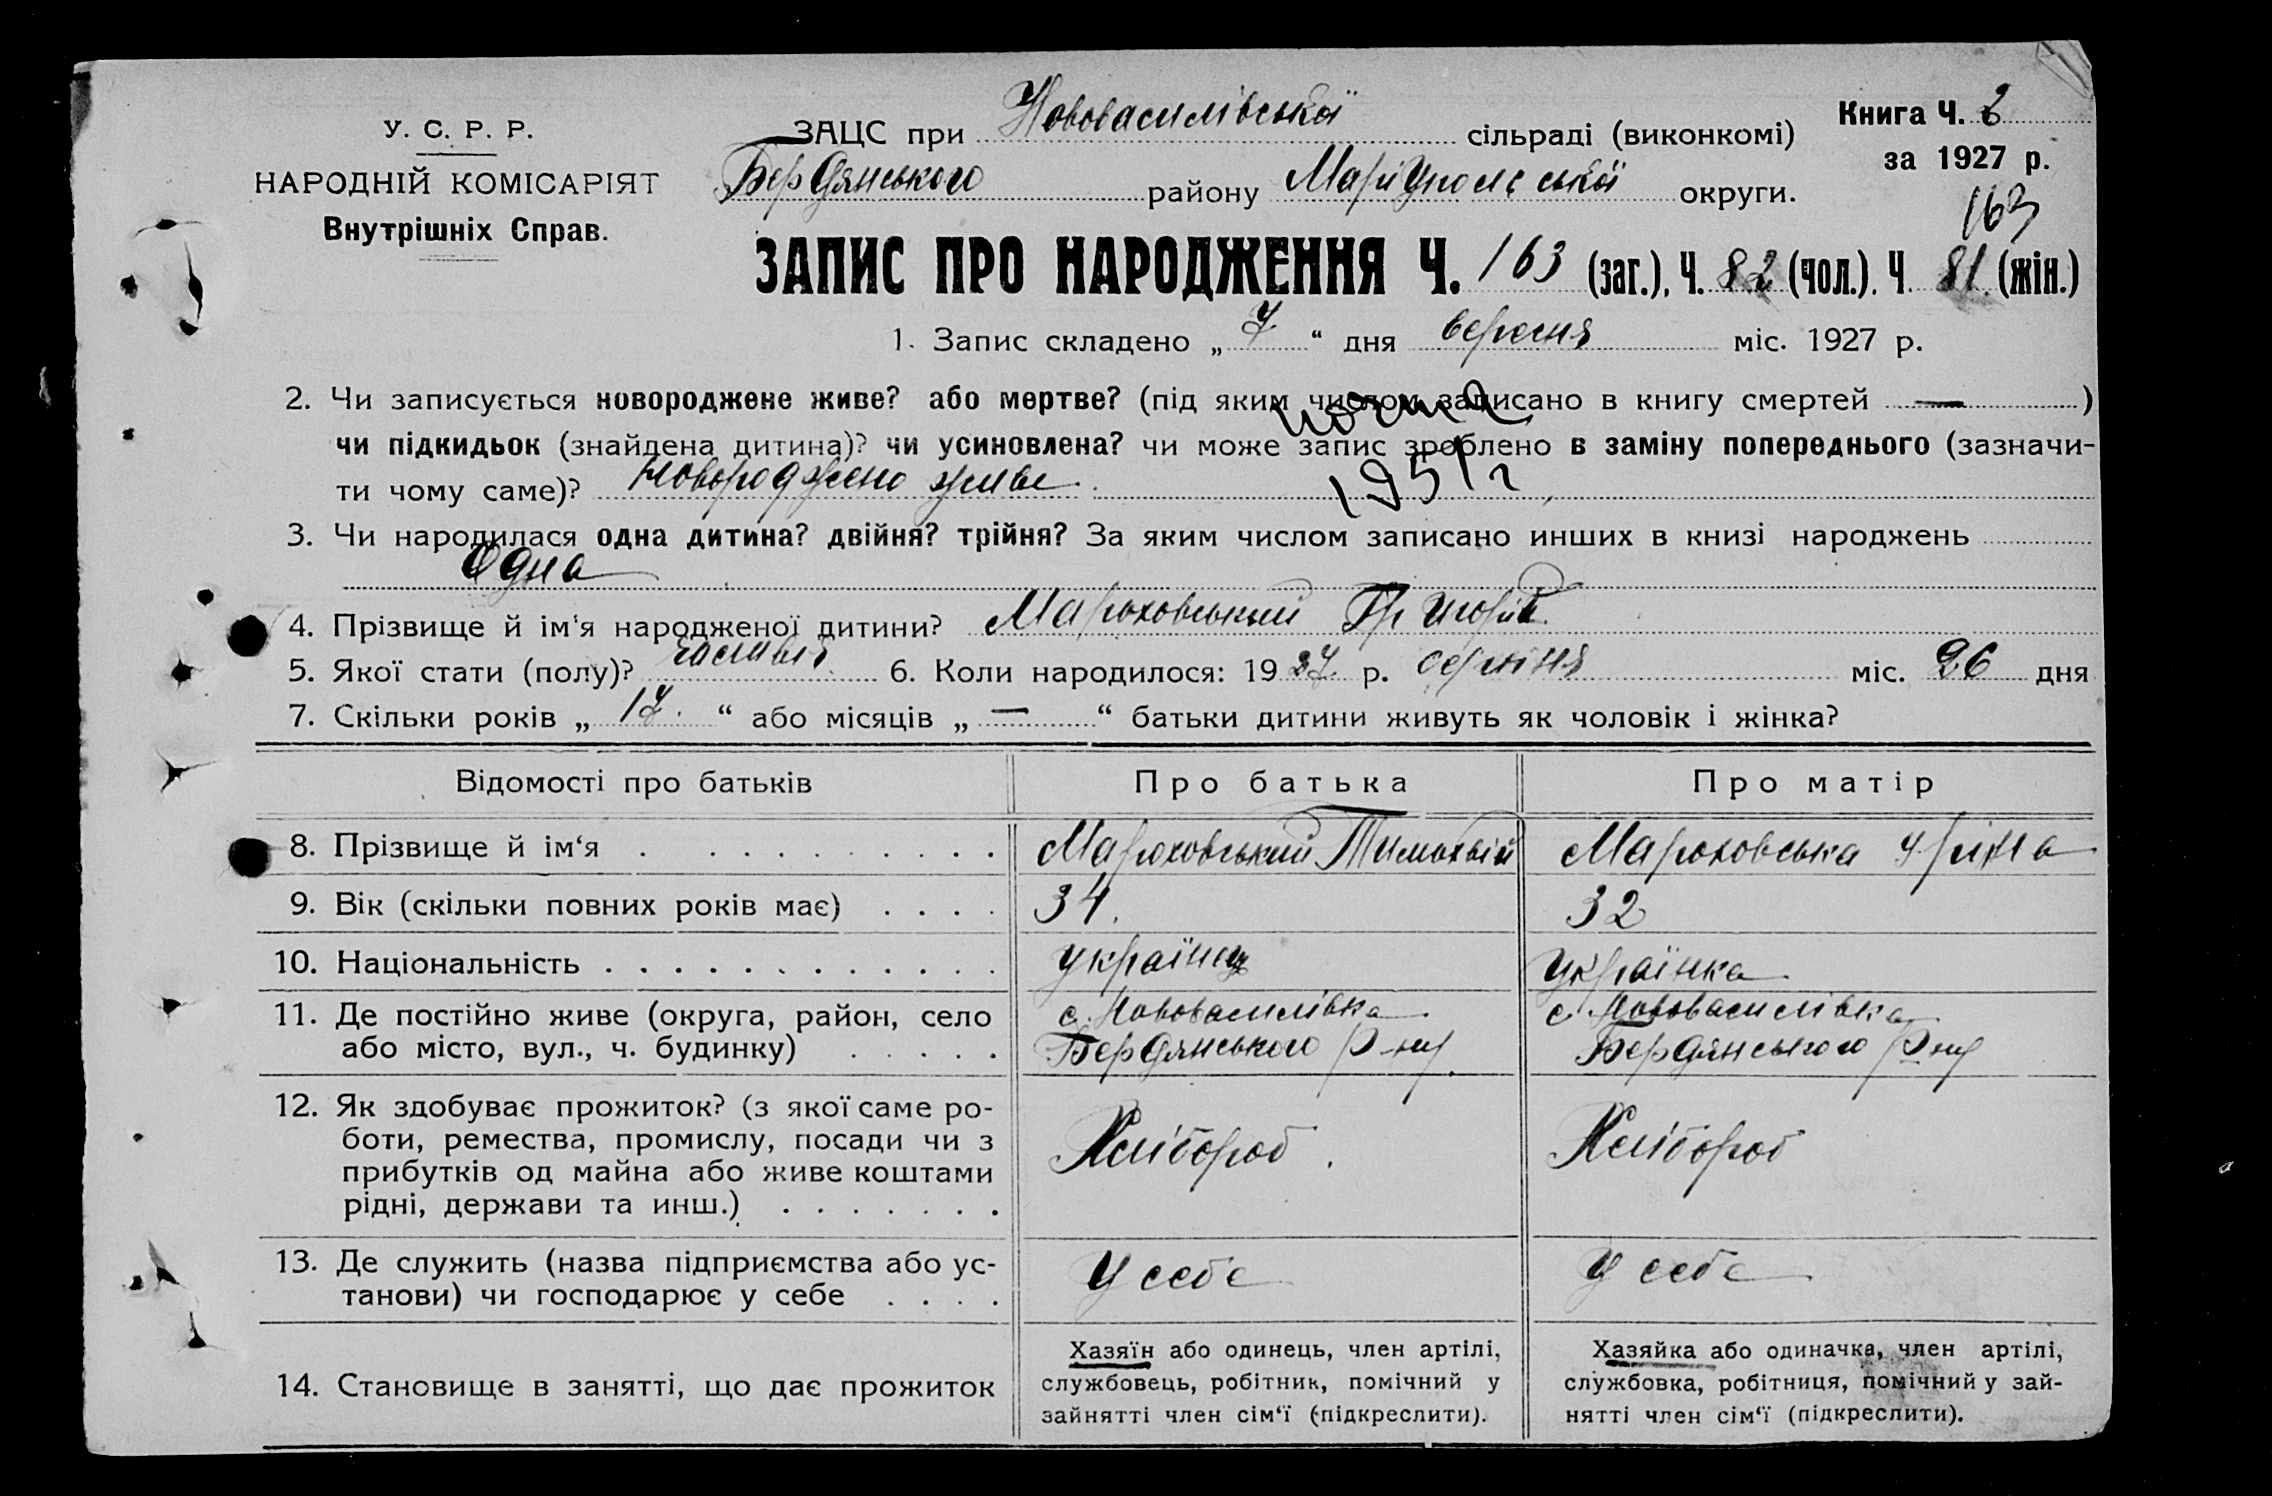 У. С. Р. Р.
НАРОДНІЙ КОМІСАРІЯТ
Внутрішніх Справ.
ЗАЦС при Нововасилівської сільраді (виконкомі)
Бердянського району Маріупольської округи.
Книга Ч. 2
за 1927 р.
163
ЗАПИС ПРО НАРОДЖЕННЯ Ч. 163 (заг.), Ч. 82 (чол.). Ч 81 (жін.)
1. Запис складено „ 7 “ дня вересня міс. 1927 р.
2. Чи записується новороджене живе? або мертве? (під яким числом записано в книгу смертей — )
чи підкидьок (знайдена дитина)? чи усиновлена? чи може запис зроблено в заміну попереднього (зазначи-
ти чому саме)? новороджено живе
1951 г
3. Чи народилася одна дитина? двійня? трійня? За яким числом записано инших в книзі народжень
Одна
4. Прізвище й ім'я народженої дитини? Марюховський Григорій
5. Якої стати (полу)? 6. Коли народилося: 1927 р. серпня міс. 26 дня
7. Скільки років „ 17. “ або місяців „ — “ батьки дитини живуть як чоловік і жінка?
Відомості про батьків Про батька Про матір
8. Прізвище й ім‘я Марюховський Тимохвій Марюховська Уріна
9. Вік (скільки повних років має) 34. 32
10. Національність українец українка
11. Де постійно живе (округа, район, село с. Нововасилівка с. Нововасилівка
або місто, вул., ч. будинку) Бердянського Р-ну Бердянського Р-ну
12. Як здобуває прожиток? (з якої саме ро-
боти, ремества, промислу, посади чи з Хлібороб. Хлібороб
прибутків од майна або живе коштами
рідні, держави та инш.)
13. Де служить (назва підприємства або ус- У себе У себе
танови) чи господарює у себе
14. Становище в занятті, що дає прожиток
Хазяїн або одинець, член артілі,
службовець, робітник, помічний у
зайнятті член сім‘ї (підкреслити).
Хазяйка або одиначка, член артілі,
службовка, робітниця, помічний у зай-
нятті член сім‘ї (підкреслити).